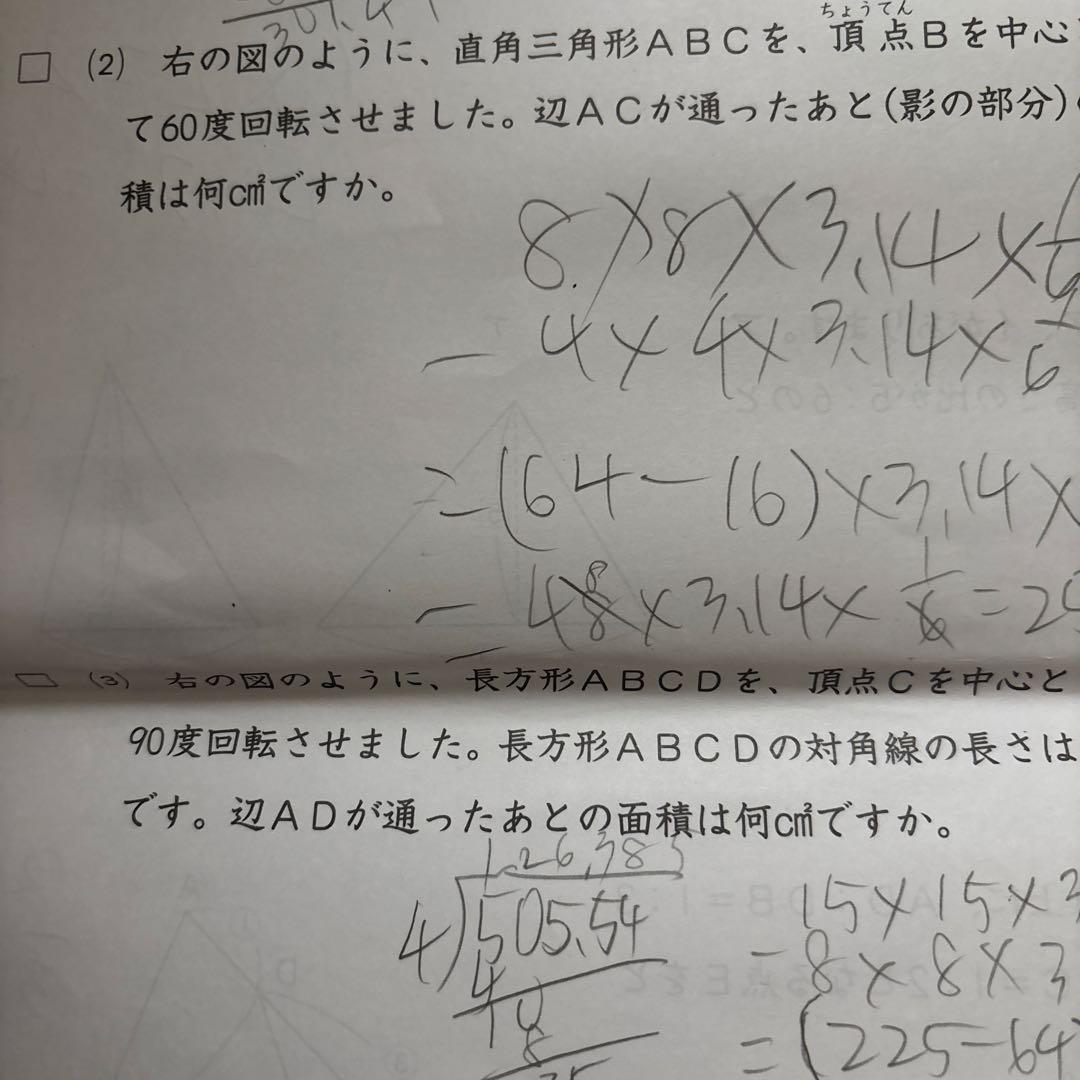 301.4
ちょうてん
□ (2) 右の図のように、直角三角形ABCを、頂点Bを中心
て60度回転させました。辺ACが通ったあと(影の部分)
積は何cm²ですか。
8×8×3.14×
－ 4×4×3.14×1/6
=(64－16)×3.14×
－ 48×3.14×1/6=2
8
□ (3) 右の図のように、長方形ABCDを、頂点Cを中心と
90度回転させました。長方形ABCDの対角線の長さは
です。辺ADが通ったあとの面積は何cm²ですか。
126.385
4)505.54
4
10
8
15×15×3
－8×8×3
=(225－64)